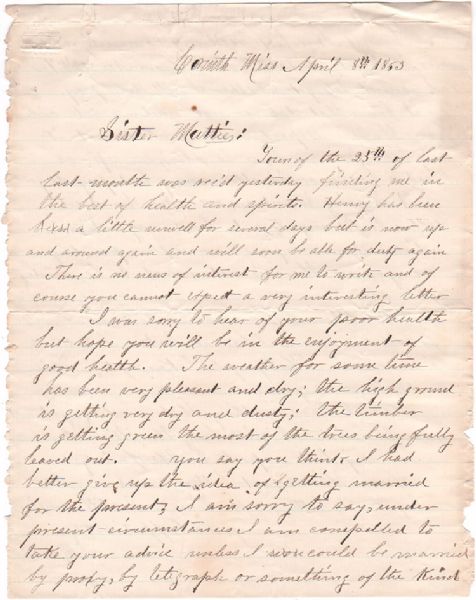 Corinth Miss April 8th 1863
Sister Mattie:
Yours of the 25th of last
last month was rec'd yesterday finding me in
the best of health and spirits. Henry has been
a little unwell for several days but is now up
and around again and will soon be able for duty again
There is no news of interest for me to write and of
course you cannot expect a very interesting letter
I was sorry to hear of your poor health
but hope you will be in the enjoyment of
good health. The weather for some time
has been very pleasant and dry; the high ground
is getting very dry and dusty; the timber
is getting green the most of the trees being fully
leaved out. You say you think I had
better give up the idea of getting married
for the present; I am sorry to say, under
present circumstances I am compelled to
take your advice unless I could be married
by proxy, by telegraph or something of the kind